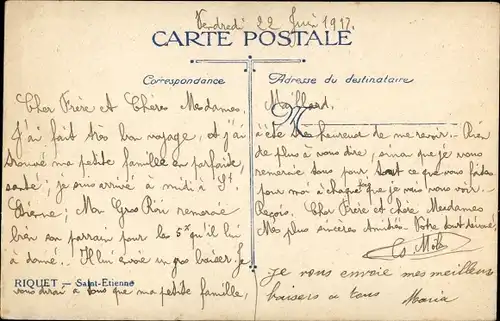 Vendredi 22 Juin 1917.
CARTE POSTALE
Correspondance
Adresse du destinataire
Cher Frère et Chères Mesdames,
J'ai fait très bon voyage, et j'ai
trouvé ma petite famille en parfaite
santé; je suis arrivé à midi à St
Etienne; Mon Gros Riri remercie
bien son parrain pour les 5 qu'il lui
a donné. Il lui envoie un gros baiser. Je
vous dirai à tous que ma petite famille,
RIQUET — Saint-Etienne
M
Maillard.
a été très heureuse de me revoir. Rien
de plus à vous dire, sinon que je vous
remercie tous pour tout ce que vous faites
pour moi à chaque fois que je vais vous voir.
Reçois, Cher Frère et chère Mesdames
Mes plus sincères Amitiés. Votre tout dévoué,
je vous envoie mes meilleurs
baisers a tous Maria